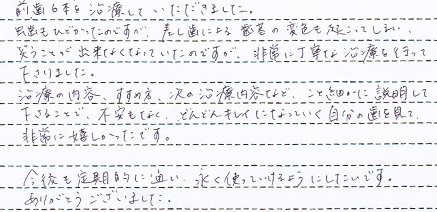 前歯6本を治療していただきました。
虫歯もひどかったのですが、差し歯による歯茎の変色も起こってしまい、
笑うことが出来なくなっていたのですが、非常に丁寧な治療を行って
下さりました。
治療の内容、すすめ方、次の治療内容など、こと細かに説明して
下さることで、不安もなく、どんどんキレイになっていく自分の歯を見て、
非常に嬉しかったです。
今後も定期的に通い、永く使っていけるようにしたいです。
ありがとうございました。